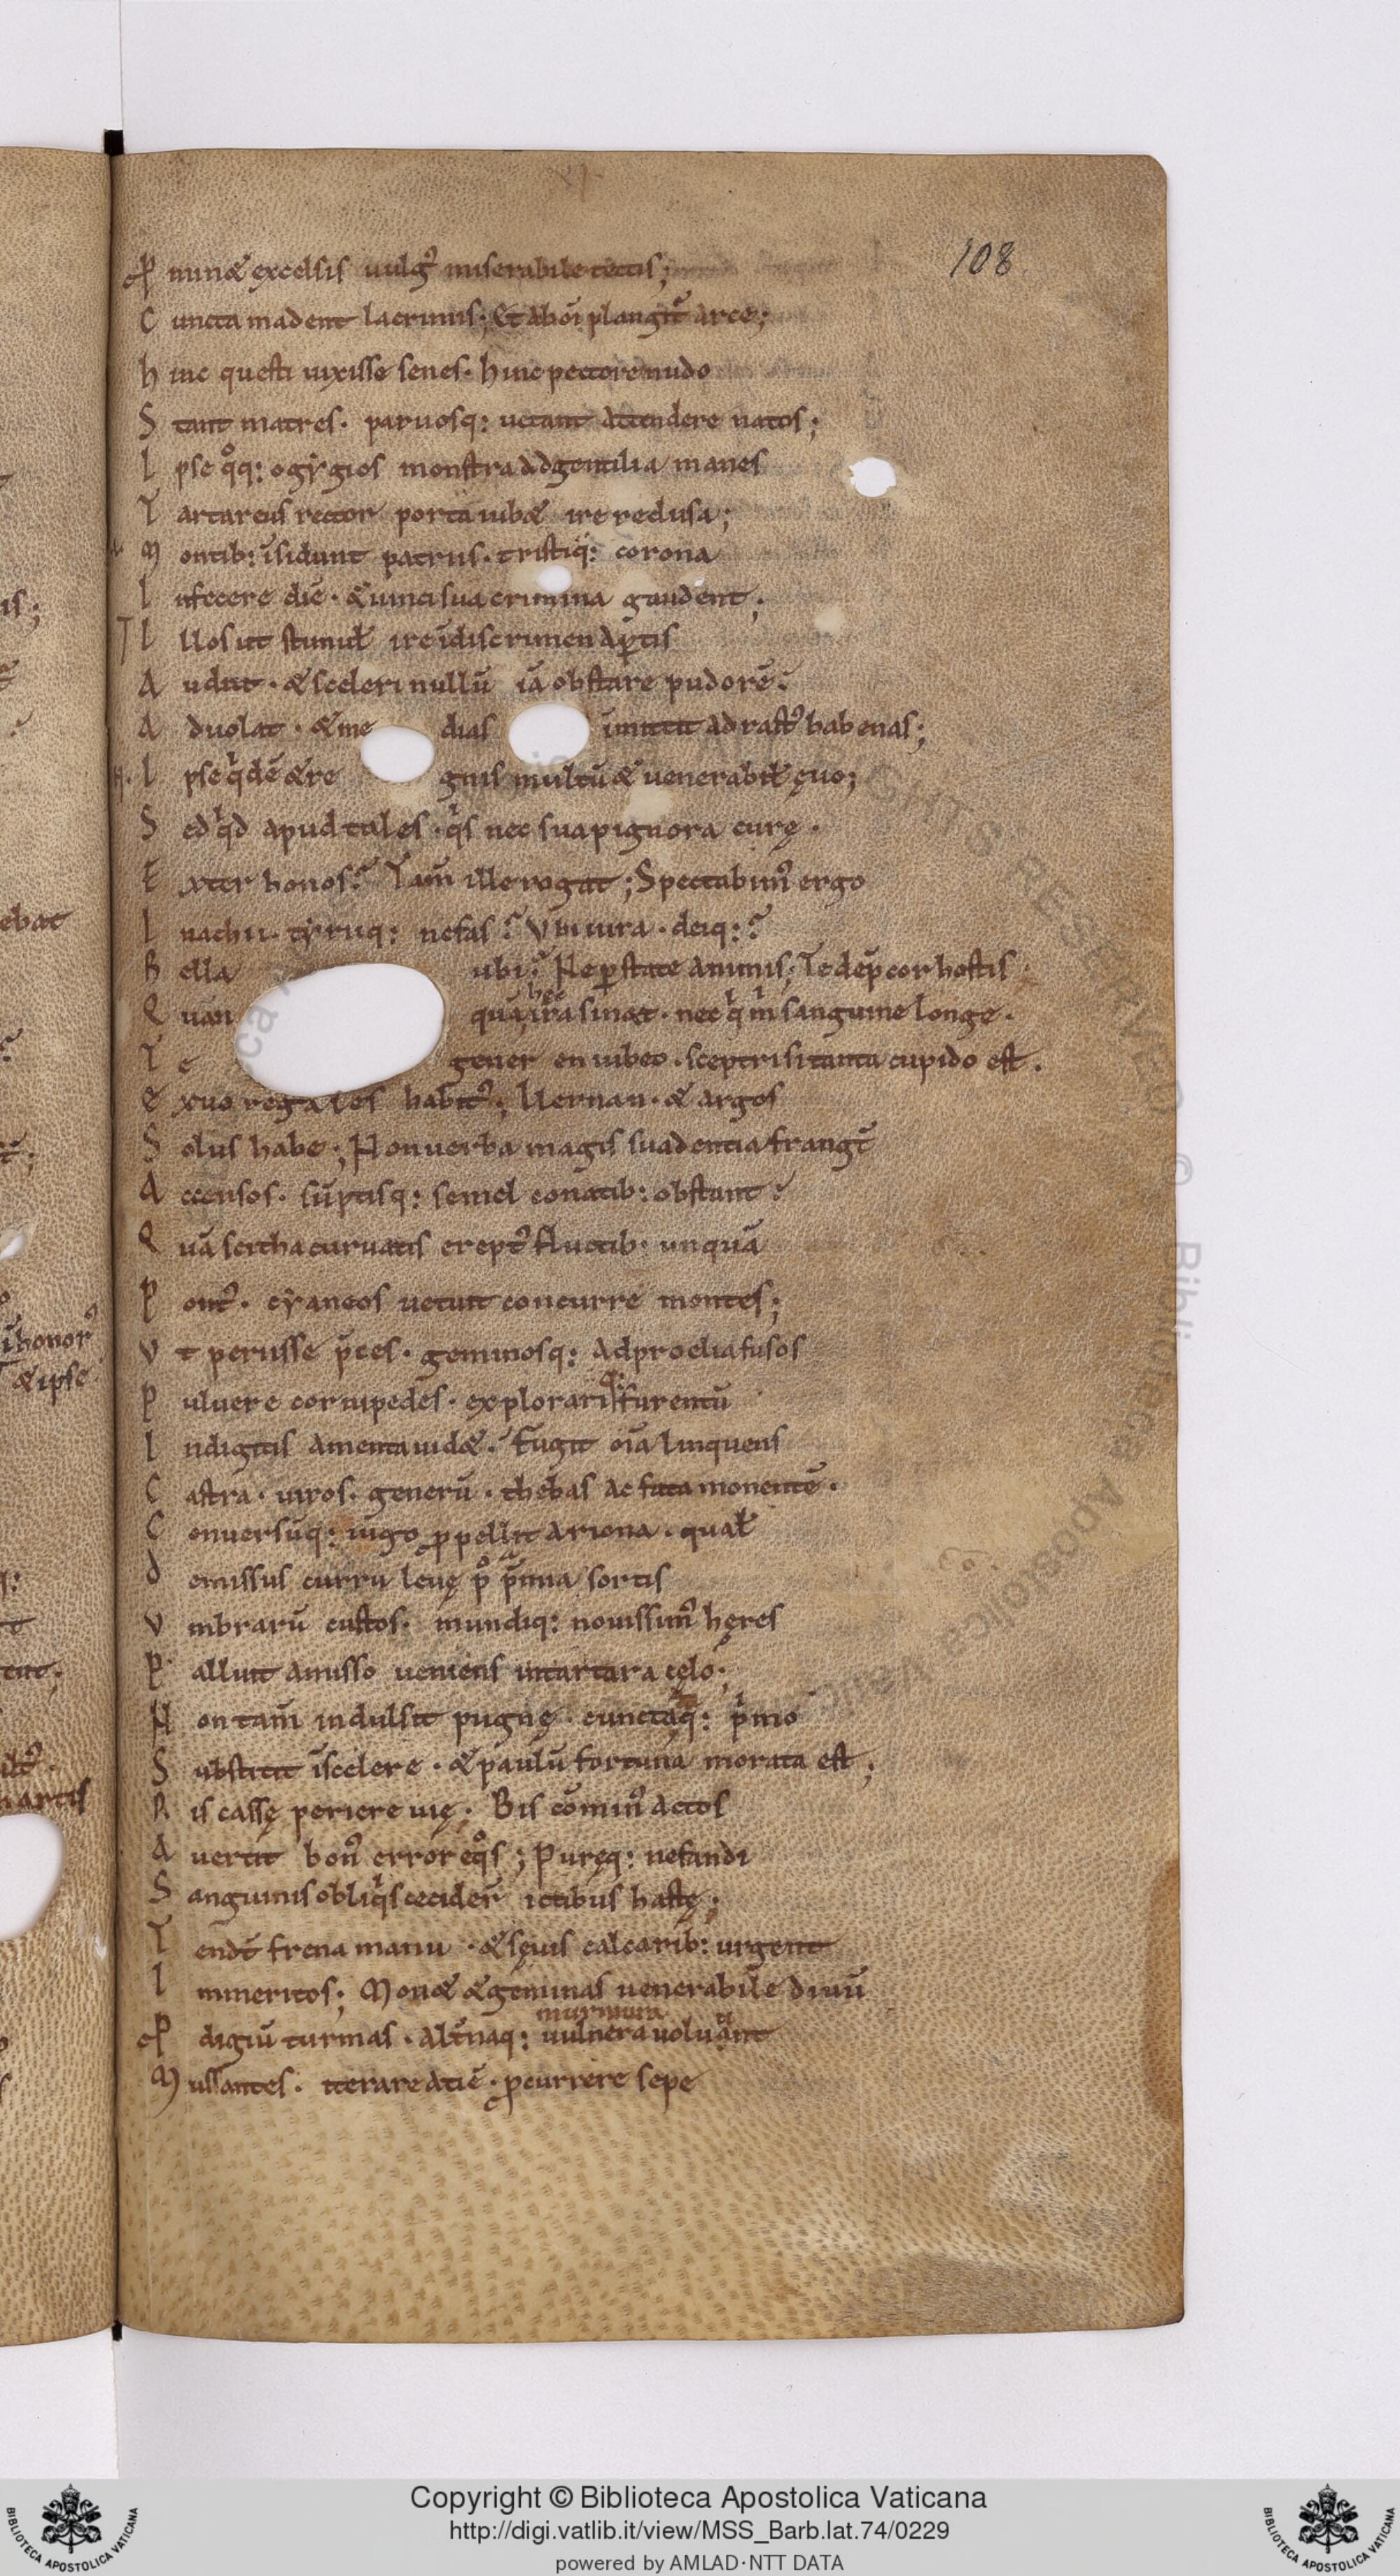 108
Pminꝫ excelsis uulgꝰ miserabile tectis;
Cuncta madent lacrimis· Et ab oı̄ plangit᷑ arce;
hinc questi uixisse senes· hinc pectore nudo
Stant matres· paruosq: uetant attendere natos;
Ipse qͦq: ogẏgios monstra ad gentilia manes
Tartareus rector porta iubꝫ ire reclusa;
Montib: īsidunt patriis· tristiq: corona
Infecere diē· & uinci sua crimina gaudent;
Illos ut stimul̄ ire ī discrimen aꝑtis
Audiit· & sceleri nullū iā obstare pudorē·
Aduolat· & me dias īmittit adrastꝰ habenas;
Ipse qͥdē & re gnis multū & uenerabil̄ ęuo;
Sed qͥd apud tales· qͥs nec sua pignora curę·
Exter honos? Tam̄ ille rogat; Spectabimꝰ ergo
Inachii· tẏriiq: nefas? Vbi iura· deiq:?
Bella ubi? Ne ꝑstate animis; Te dep̄cor hostis
Quan quā hęc ira sinat· nec qͥ mͥ sanguine longe·
Te gener en iubeo· sceptri si tanta cupido est·
Exuo regales habitꝰ; I lernan· & argos
Solus habe; Non uerba magis suadentia frangt̄
Accensos· sūptisq: semel conatib: obstant·
Quā scitha curuatis ereptꝰ fluctib· unquā
Pontꝰ· cẏaneos uetuit concurre montes;
Vt periisse p̄ces· geminosq: ad proelia fusos
Puluere cornipedes· explorariq: furentū
Indigitis amenta uidꝫ· Fugit oı̄a linquens
Castra· uiros· generū· thebas ac fata monentē·
Conuersūq: iugo ꝓpellit ariona· qual̄
Demissus curru leuę pͦ pͣmia sortis
Vmbrarū custos· mundiq: nouissimꝰ hęres
Palluit amisso ueniens in tartara cęlo;
Non tam̄ indulsit pugnę· cunctaq: pͥmo
Substitit ī scelere· & paulū fortuna morata est;
Bis cassę periere uię; Bis cōminꝰ actos
Auertit bonꝰ error eqͦs; Puręq: nefandi
Sanguinis obliqͥs cecider̄ ictibus hastę;
Tendt̄ frena manu· & sęuis calcarib: urgent
Immeritos; Mouꝫ & geminas uenerabile diuū
Pdigiū turmas· alt̄naq: uulnera uoluant
murmura
Mussantes· iterare aciē· ꝓcurrere sepe
ebat
honorꝰ
& ipse
artis
Copyright © Biblioteca Apostolica Vaticana
http://digi.vatlib.it/view/MSS_Barb.lat.74/0229
powered by AMLAD·NTT DATA
BIBLIOTECA APOSTOLICA VATICANA
BIBLIOTECA APOSTOLICA VATICANA